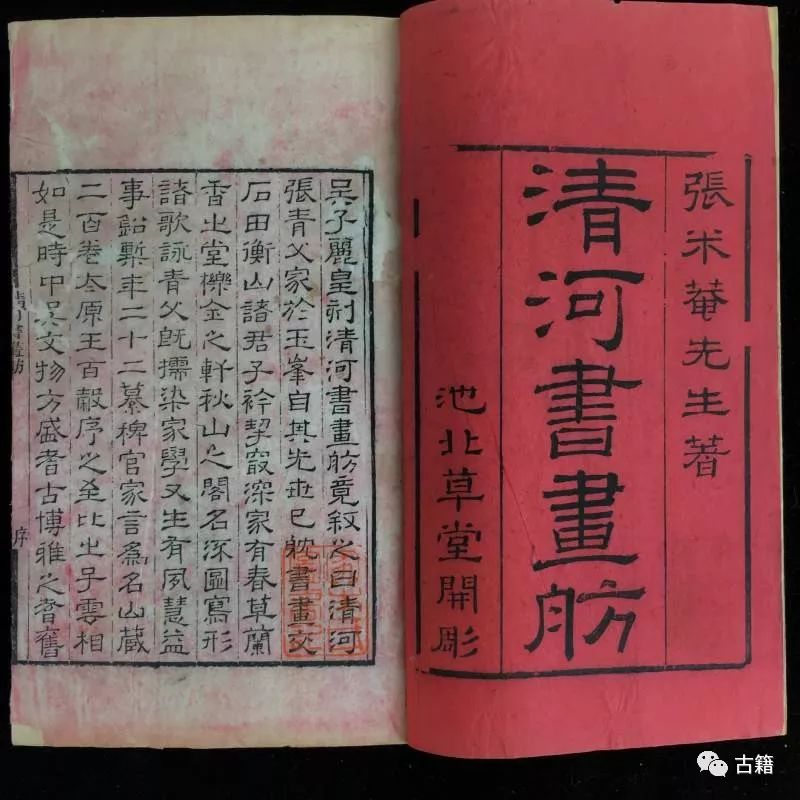 張米菴先生著
清河書畫舫
池北草堂開彫
吳子麗皇刻清河書畫舫竟敘之曰清河
張青父家於玉峯自其先世已躭書畫交
石田衡山諸君子衿契寂深家有春草蘭
香之堂櫟金之軒秋山之閣名流圖寫形
諸歌詠青父旣擩染家學又生有夙慧益
事鉛槧年二十二纂稗官家言爲名山藏
二百卷太原王百穀序之至比之子雲相
如是時中吳文物方盛耆古博雅之耆舊
清河書畫舫
序
古籍